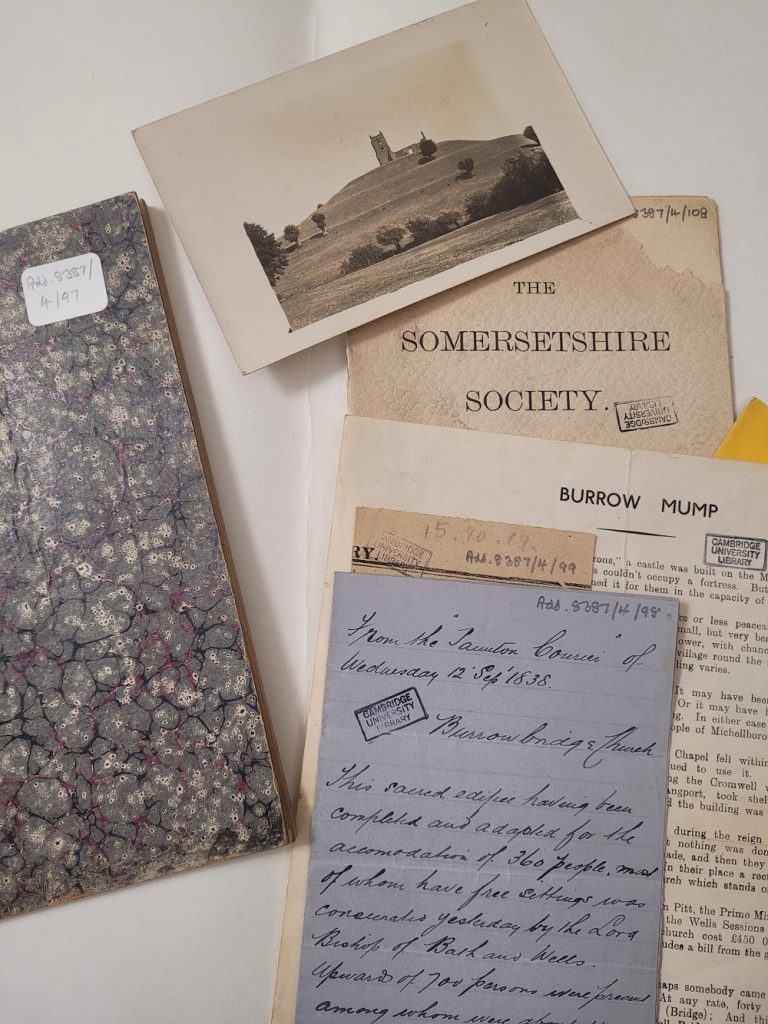 Add. 8387/
4/97
8387/4/108
THE
SOMERSETSHIRE
SOCIETY.
CAMBRIDGE
UNIVERSITY
LIBRARY
BURROW MUMP
CAMBRIDGE
UNIVERSITY
LIBRARY
15.10.19
RY
CAMBRIDGE
UNIVERSITY
LIBRARY
Add. 8387/4/99
rons," a castle was built on the M
s couldn't occupy a fortress. But
ued it for them in the capacity of
re or less peaceab
mall, but very bea
ower, with chanc
village round the
ling varies.
It may have been
Or it may have h
g. In either case
ople of Michellboro
Chapel fell within
ued to use it.
ng the Cromwell
angport, took shel
d the building was
during the reign
t nothing was don
ade, and then they
In their place a rect
rch which stands o
m Pitt, the Prime Mi
the Wells Sessions
hurch cost £450 0
udes a bill from the g
aps somebody came
At any rate, forty
(Bridge); And thi
Add. 8387/4/98
From the "Taunton Courier" of
Wednesday 12 Sep' 1838.
CAMBRIDGE
UNIVERSITY
LIBRARY
Burrowbridge Church
This sacred edifice having been
completed and adapted for the
accomodation of 360 people, most
of whom have free sittings was
consecrated yesterday by the Lord
Bishop of Bath and Wells.
Upward of 700 persons were present
among whom were about